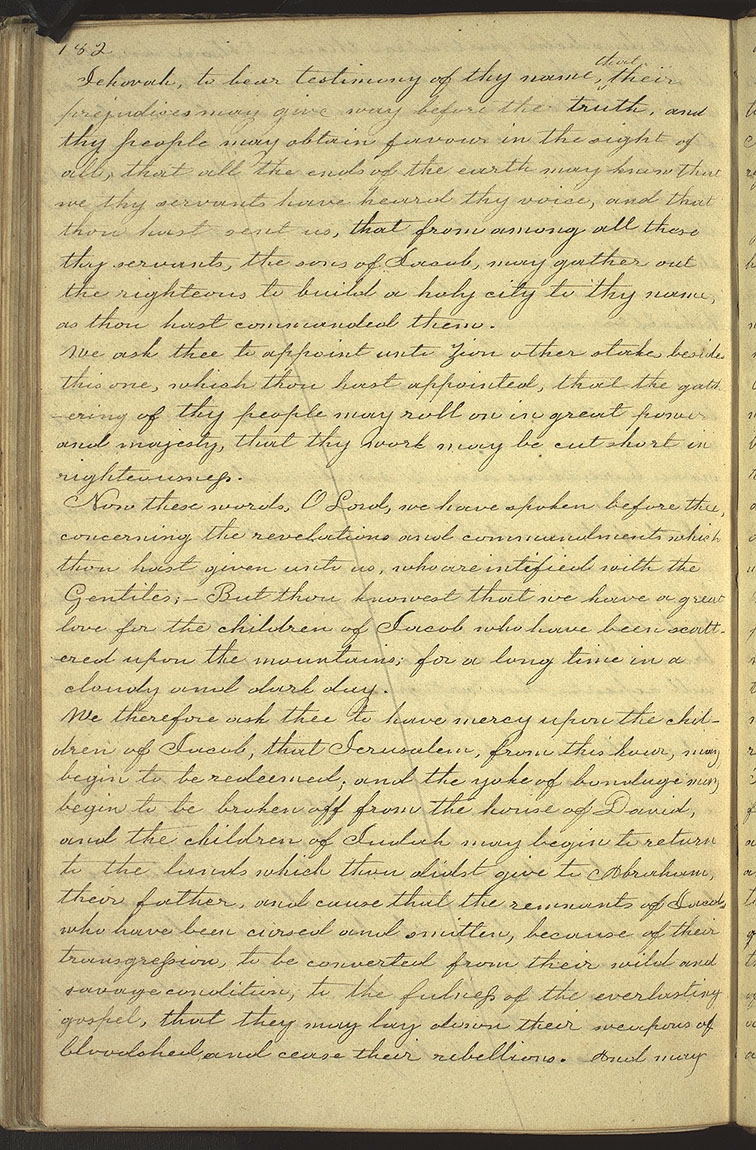 182
Jehovah, to bear testimony of thy name, that their
prejudices may give way before the truth, and
thy people may obtain favour in the sight of
all, that all the ends of the earth may know that
we thy servants have heard thy voice, and that
thou hast sent us, that from among all these
thy servants, the sons of Jacob, may gather out
the righteous to build a holy city to thy name,
as thou hast commanded them.
We ask thee to appoint unto Zion other stakes beside
this one, which thou hast appointed, that the gath
-ering of thy people may roll on in great power
and majesty, that thy work may be cut short in
righteousness.
Now these words, O Lord, we have spoken before thee,
concerning the revelations and commandments which
thou hast given unto us, who are intified with the
Gentiles;- But thou knowest that we have a great
love for the children of Jacob who have been scatt-
-ered upon the mountains; for a long time in a
cloudy and dark day.
We therefore ask thee to have mercy upon the chil-
dren of Jacob, that Jerusalem, from this hour, may
begin to be redeemed; and the yoke of bondage may
begin to be broken off from the house of David,
and the children of Judah may begin to return
to the lands which thou didst give to Abraham,
their father, and cause that the remnants of Jacob,
who have been cursed and smitten, because of their
transgression, to be converted from their wild and
savage condition, to the fulness of the everlasting
gospel, that they may lay down their weapons of
bloodshed, and cease their rebellions. And may